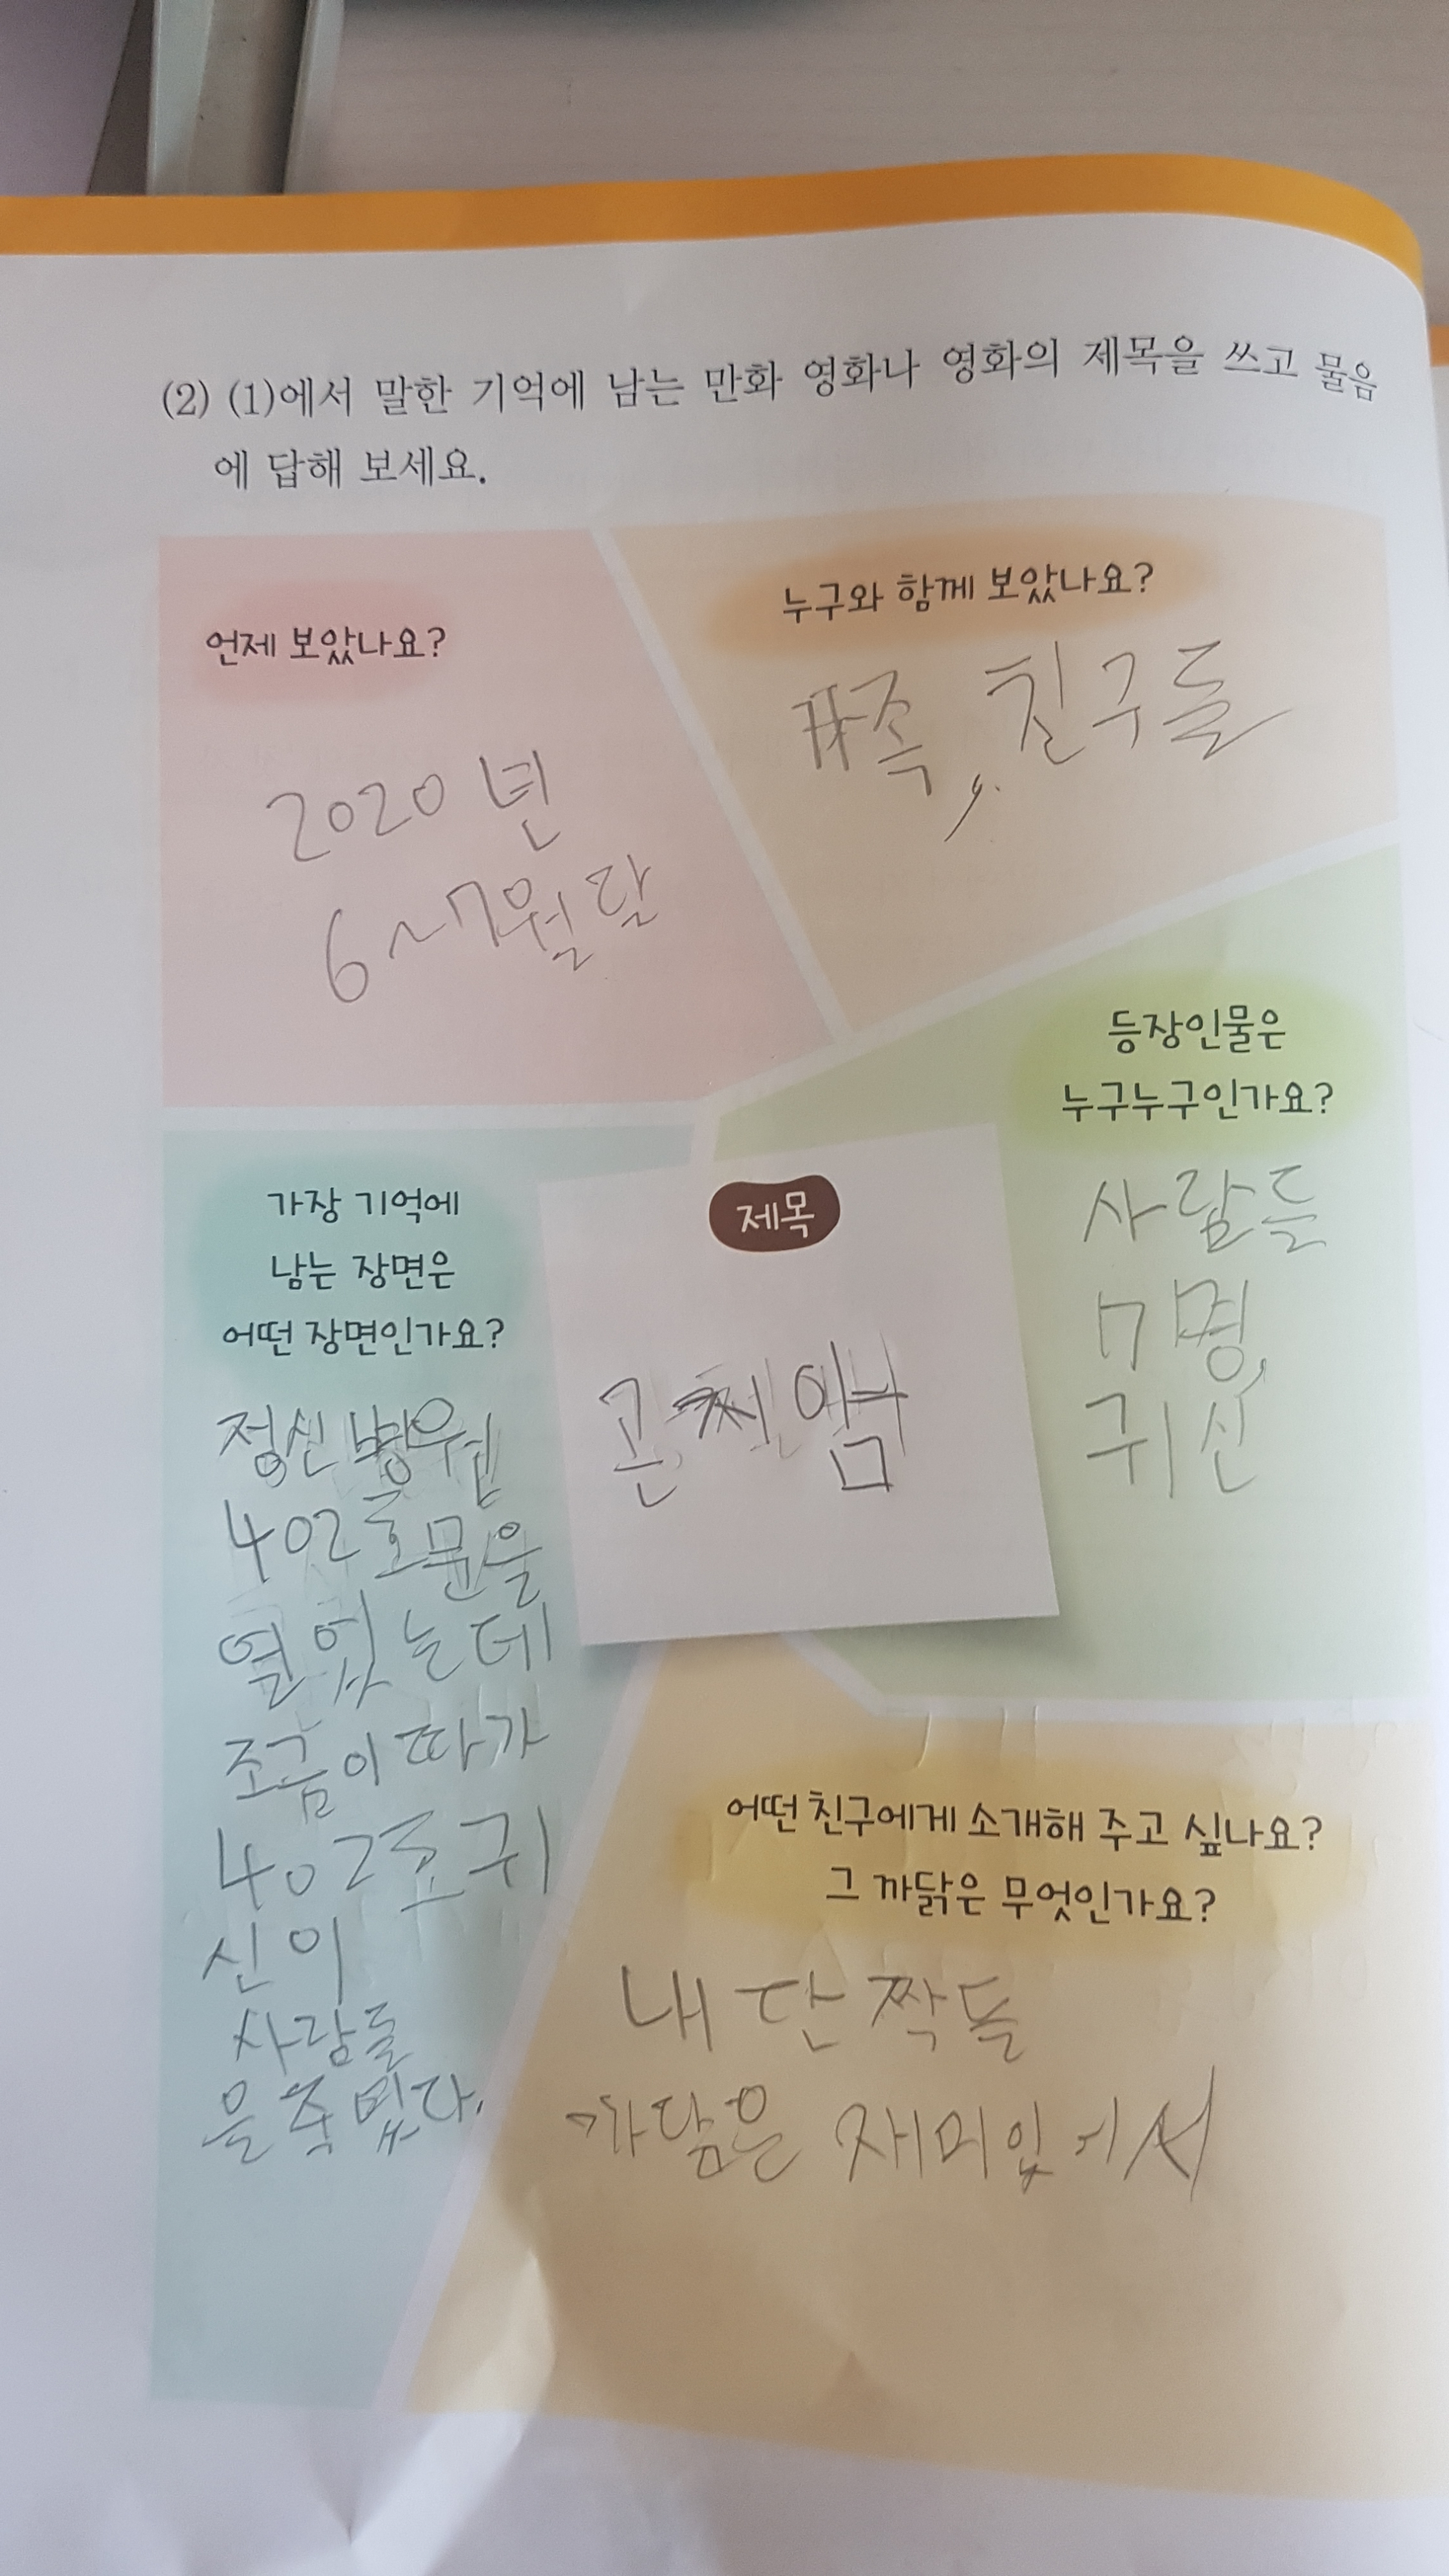 (2) (1)에서 말한 기억에 남는 만화 영화나 영화의 제목을 쓰고 물음
에 답해 보세요.
언제 보았나요?
2020년
6~7월달
누구와 함께 보았나요?
가족, 친구들
등장인물은
누구누구인가요?
사람들
7명,
귀신
제목
가장 기억에
남는 장면은
어떤 장면인가요?
정신병원
402호문을
열었는데
조금이따가
402호귀
신이
사람들
을죽였다.
어떤 친구에게 소개해 주고 싶나요?
그 까닭은 무엇인가요?
내 단짝들
재미있어서